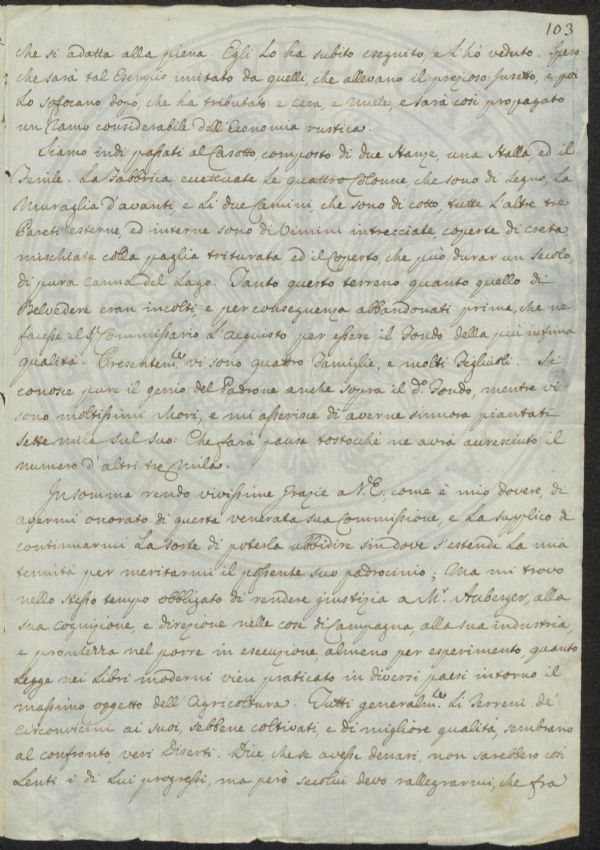 103
che si adatta alla piena. Egli Lo ha subito eseguito, e l'hò veduto. Spero
che sarà tal Esempio imitato da quelli, che allevano il prezioso Insetto, e poi
Lo sofocano dopo, che ha tributato e Cera, e Miele, e sarà così propagato
un Ramo considerabile dell'Economia rustica.
Siamo indi passati al Casotto, composto di due Stanze, una Stalla, ed il
Fenile. La Fabbrica eccettuate Le quattro Colonne, che sono di Legno, La
Muraglia d'avanti e Li due Camini, che sono di cotto, tutte l'altre tre
Pareti esterne, ed interne sono di Vimini intrecciate coperte di creta
mischiata colla paglia triturata ed il Coperto, che può durar un Secolo,
di pura Canna del Lago. Tanto questo terreno quanto quello di
Belvedere eran incolti e per conseguenza abbandonati prima, che ne
facesse il Sr Commissario l'acquisto per essere il Fondo della più infima
qualità. Presentemte vi sono quattro Famiglie, e molti Figliuoli. Si
conosce pure il genio del Padrone anche sopra il do Fondo, mentre vi
sono moltissimi Mori, e mi asserisce di averne sinnora piantati
sette mila sul suo: Che farà pausa tostocchè ne avrà accresciuto il
numero d'altri tre Mila.
In somma rendo vivissime grazie a V.E. come è mio dovere, di
avermi onorato di questa venerata sua Commissione, e La supplico di
continuarmi La sorte di poterla ubbidire sin dove s'estende La mia
tenuità per meritarmi il possente suo padrocinio; Ma mi trovo
nello stesso tempo obbligato di rendere giustizia a Mr. Auberger, alla
sua cognizione, e direzione nelle cose di Campagna, alla sua industria,
e prontezza nel porre in esecuzione, almeno per esperimento, quanto
Legge nei Libri moderni vien praticato in diversi paesi intorno il
massimo oggetto dell'Agricoltura. Tutti generalmte Li Terreni de'
circonvicini ai suoi, sebbene coltivati, e di migliore qualità, sembrano
al confronto veri Diserti. Dice che se avesse denari, non sarebbero così
Lenti i di Lui progressi, ma però secolui devo rallegrarmi, che fra